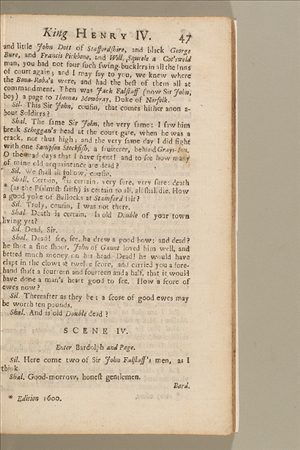 King HENRY IV. 47
and little John Doit of Staffordshire, and black George
Bare, and Francis Pickbone, and Will. Squele a Cot'swold
man, you had not four such swing-bucklers in all the Inns
of court again; and I may say to you, we knew where
the Bona-Roba's were, and had the best of them all at
commandment. Then was Jack Falstaff (now Sir John,
boy) a page to Thomas Mowbray, Duke of Norfolk.
Sil. This Sir John, cousin, that comes hither anon a-
bout Soldiers?
Shal. The same Sir John, the very same: I saw him
break Schoggan's head at the court gate, when he was a
crack, not thus high; and the very same day I did fight
with one Sampson Stockfish, a fruiterer, behind Grays-Inn.
O the mad days that I have spent! and to see how many
of mine old acquaintance are dead?
Sil. We shall all follow, cousin.
Shal. Certain, 'tis certain, very sure, very sure: death
* (as the Psalmist saith) is certain to all, all shall die. How
a good yoke of Bullocks at Stamford fair?
Sil. Truly, cousin, I was not there.
Shal. Death is certain. Is old Double of your town
living yet?
Sil. Dead, Sir.
Shal. Dead! see, see, he drew a good bow: and dead?
he shot a fine shoot. John of Gaunt loved him well, and
betted much money on his head. Dead! he would have
clapt in the clowt at twelve score, and carried you a fore-
hand shaft a fourteen and fourteen and a half, that it would
have done a man's heart good to see. How a score of
ewes now?
Sil. Thereafter as they be: a score of good ewes may
be worth ten pounds.
Shal. And is old Double dead?
SCENE IV.
Enter Bardolph and Page.
Sil. Here come two of Sir John Falstaff's men, as I
think.
Shal. Good-morrow, honest gentlemen.
Bard.
* Edition 1600.